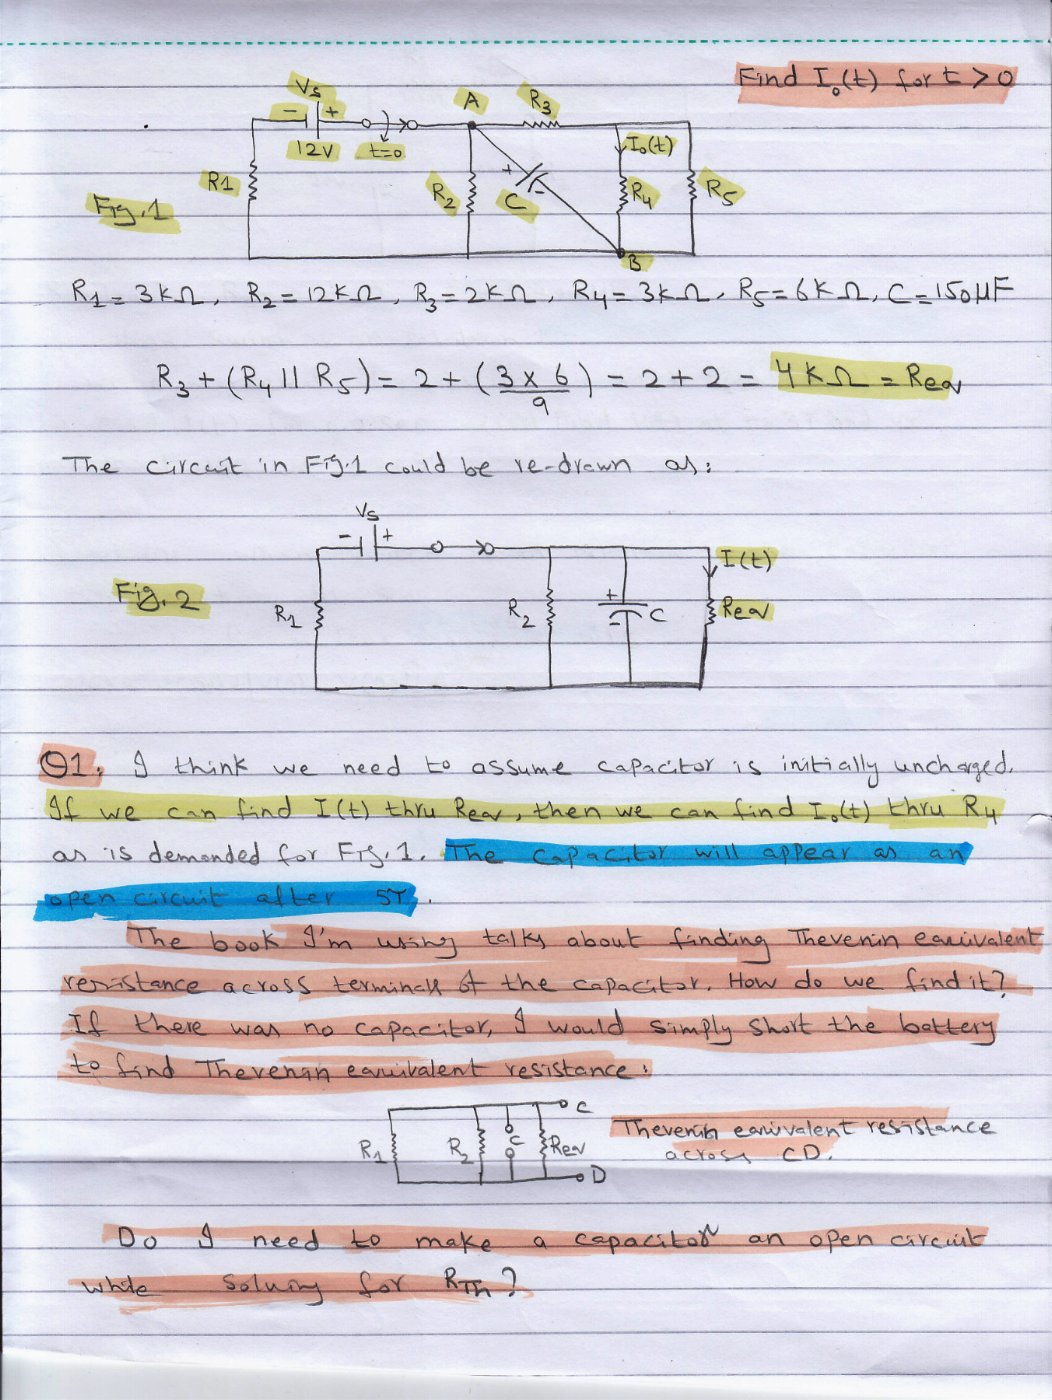 Find I₀(t) for t > 0
Vs
- +
12V t=0
A R3
I₀(t)
R1 R2 + C - R4 R5
Fig.1
B
R1 = 3kΩ, R2 = 12kΩ, R3 = 2kΩ, R4 = 3kΩ, R5 = 6kΩ, C = 150µF
R3 + (R4 || R5) = 2 + (3 x 6 / 9) = 2 + 2 = 4kΩ = Req
The circuit in Fig.1 could be re-drawn as:
Vs
- +
I(t)
Fig. 2
R1 R2 + - C Req
Q1. I think we need to assume capacitor is initially uncharged.
If we can find I(t) thru Req, then we can find I₀(t) thru R4
as is demanded for Fig.1. The capacitor will appear as an
open circuit after 5T.
The book I'm using talks about finding Thevenin equivalent
resistance across terminals of the capacitor. How do we find it?
If there was no capacitor, I would simply short the battery
to find Thevenin equivalent resistance:
C
R1 R2 C Req
D
Thevenin equivalent resistance
across CD.
Do I need to make a capacitor an open circuit
while solving for RTh?